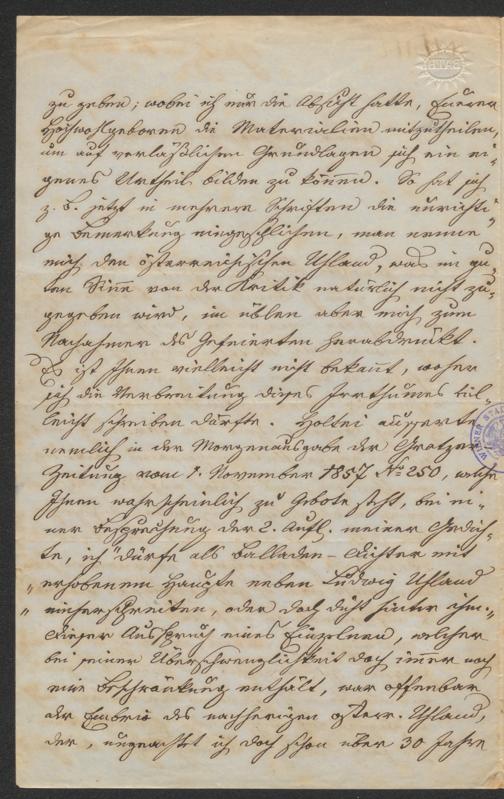 zu geben; wobei ich nur die Absicht hatte, Euerer
Hochwohlgeboren die Materialien mitzutheilen
um auf verläßlichen Grundlagen sich ein ei-
genes Urtheil bilden zu können. So hat sich
z. b. jetzt in mehrere Schriften die unrichti-
ge Bemerkung eingeschlichen, man nenne
mich den österreichischen Uhland, was im gu-
ten Sinne von der Kritik natürlich nicht zu-
gegeben wird, im üblen aber mich zum
Nachahmer des Gefeierten herabdrückt.
Es ist Ihnen vielleicht nicht bekannt, woher
sich die Verbreitung dieses Irrthumes
leicht schreiben dürfte. Holtei äusserte
nemlich in der Morgenausgabe der Gratzer
Zeitung vom 1. November 1857 No 250, welche
Ihnen wahrscheinlich zu Gebote steht, bei ei-
ner Besprechung der 2. Aufl. meiner Gedich-
te, ich "dürfe als Balladen-Dichter mit
"erhobenem Haupte neben Ludwig Uhland
"einherschreiten, oder doch dicht hinter ihm."
Dieser Ausspruch eines Einzelnen, welcher
bei seiner Überschwenglichkeit doch immer noch
eine Beschränkung enthält, war offenbar
der Embrio des nachherigen österr. Uhland,
der, ungeachtet ich doch schon über 30 Jahre
WIENER